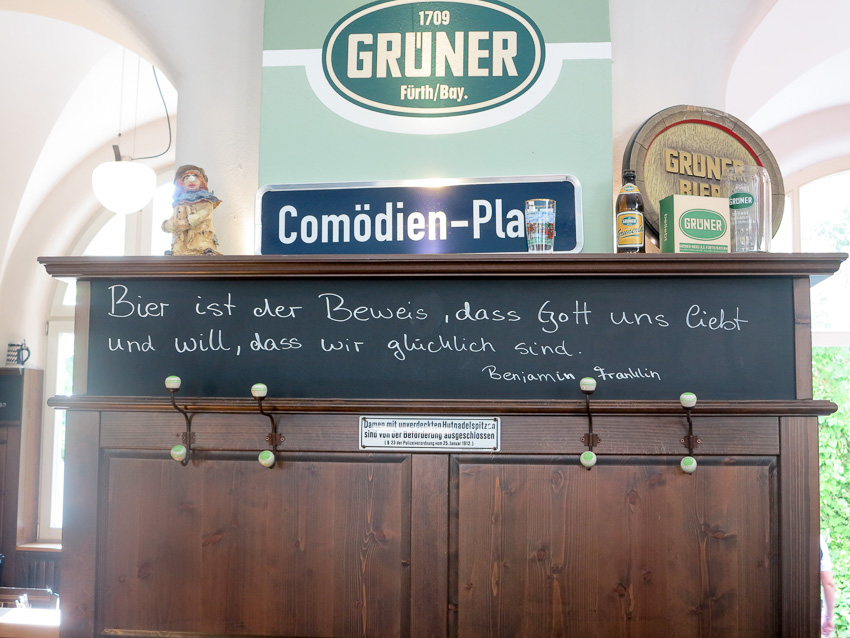 1709
GRÜNER
Fürth/Bay.
Comödien-Pla
GRÜNER
BIER
GRÜNER
GRÜNER
GRÜNER
Bier ist der Beweis, dass Gott uns liebt
und will, dass wir glücklich sind.
Benjamin Franklin
Damen mit unverdeckten Hutnadelspitzen
sind von der Beförderung ausgeschlossen